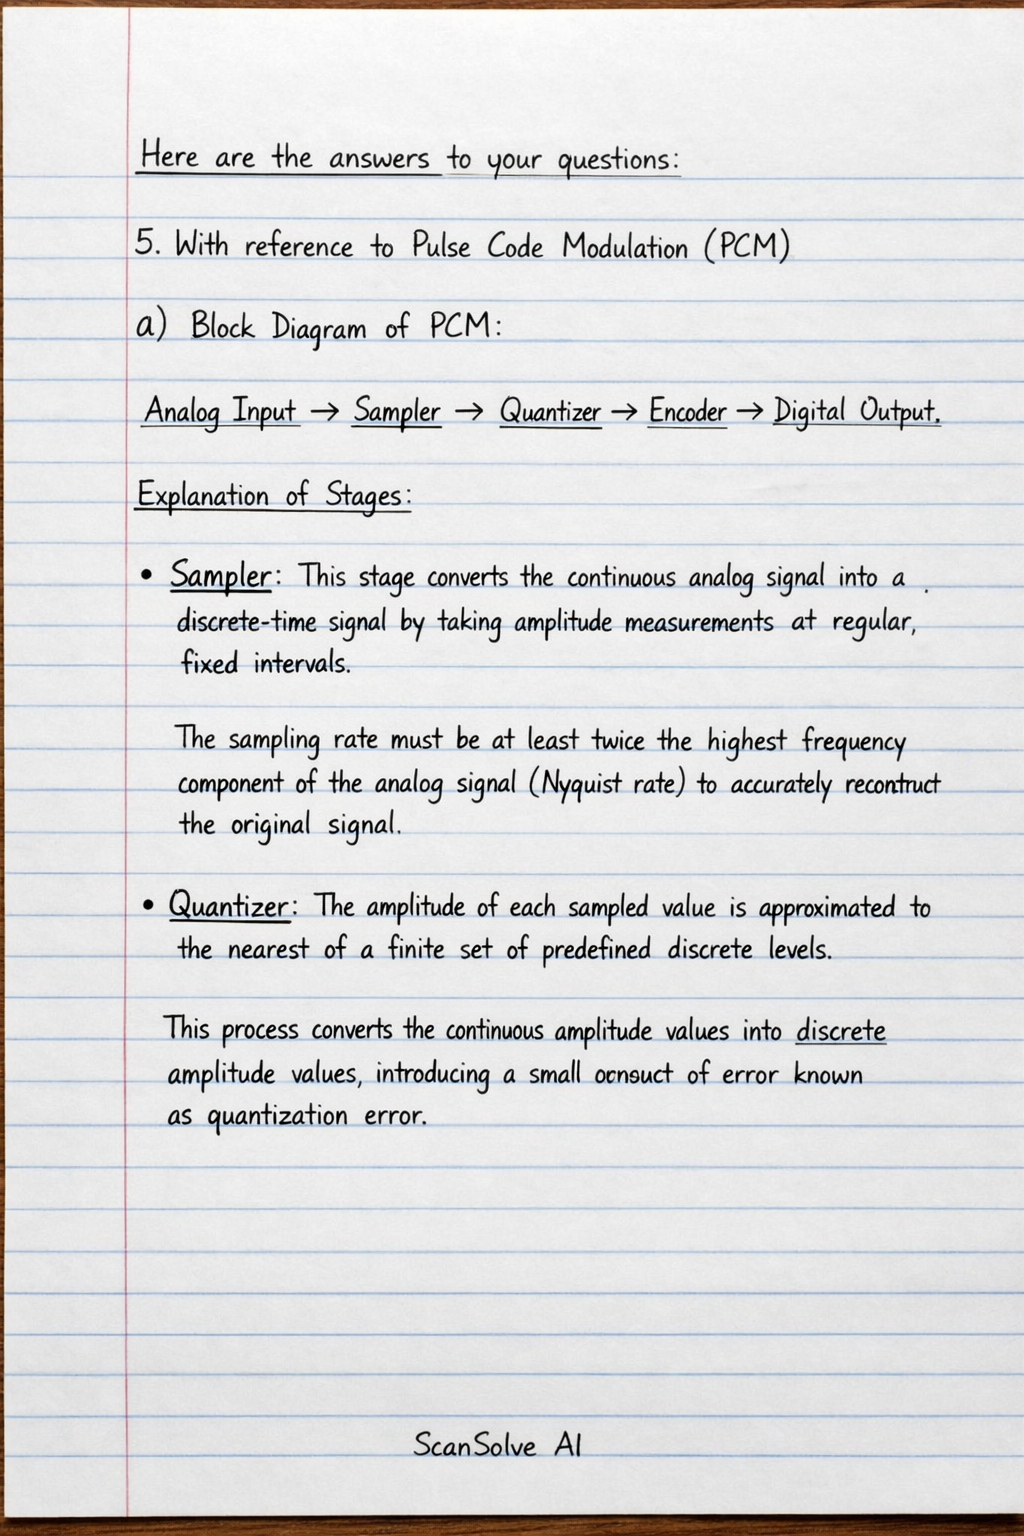 Here are the answers to your questions:
5. With reference to Pulse Code Modulation (PCM)
a) Block Diagram of PCM:
Analog Input → Sampler → Quantizer → Encoder → Digital Output.
Explanation of Stages:
• Sampler: This stage converts the continuous analog signal into a .
discrete-time signal by taking amplitude measurements at regular,
fixed intervals.
The sampling rate must be at least twice the highest frequency
component of the analog signal (Nyquist rate) to accurately
the original signal.
• Quantizer: The amplitude of each sampled value is approximated to
the nearest of a finite set of predefined discrete levels.
This process converts the continuous amplitude values into discrete
amplitude values, introducing a small of error known
as quantization error.
ScanSolve AI